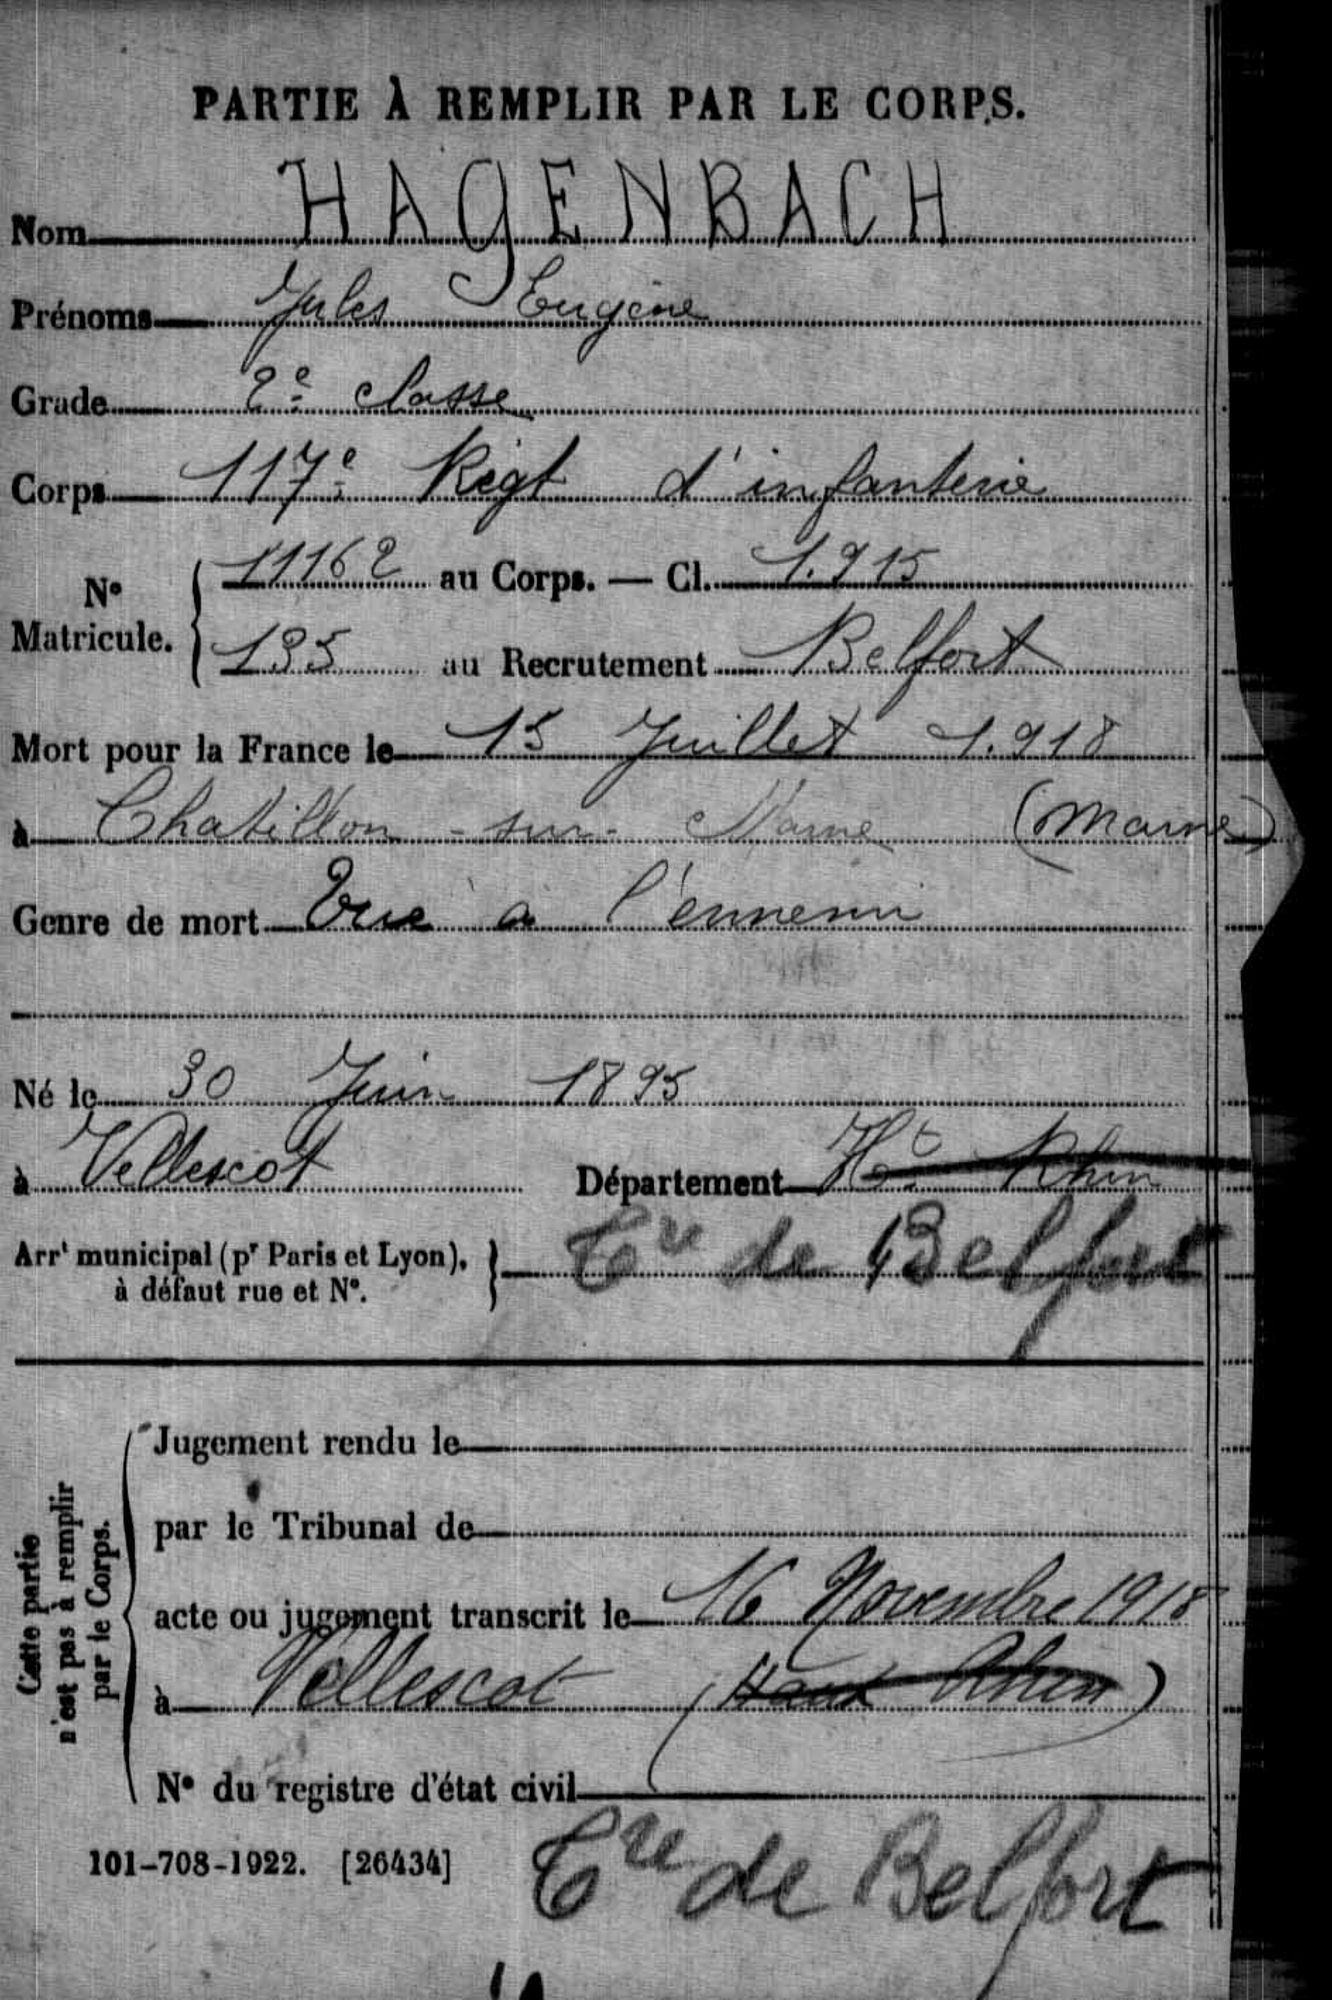 PARTIE À REMPLIR PAR LE CORPS.
Nom HAGENBACH
Prénoms Jules Eugène
Grade 2e classe
Corps 117e Régt d'infanterie
No Matricule. 11162 au Corps. — Cl. 1.915
135 au Recrutement Belfort
Mort pour la France le 15 Juillet 1.918
à Chatillon-sur-Marne (Marne)
Genre de mort Tué à l'ennemi
Né le 30 Juin 1895
à Vellescot Département Ht Rhin
Arrt municipal (pr Paris et Lyon), à défaut rue et No. Tre de Belfort
Cette partie n'est pas à remplir par le Corps.
Jugement rendu le
par le Tribunal de
acte ou jugement transcrit le 16 Novembre 1918
à Vellescot (Haut Rhin)
No du registre d'état civil
101-708-1922. [26434] Tre de Belfort